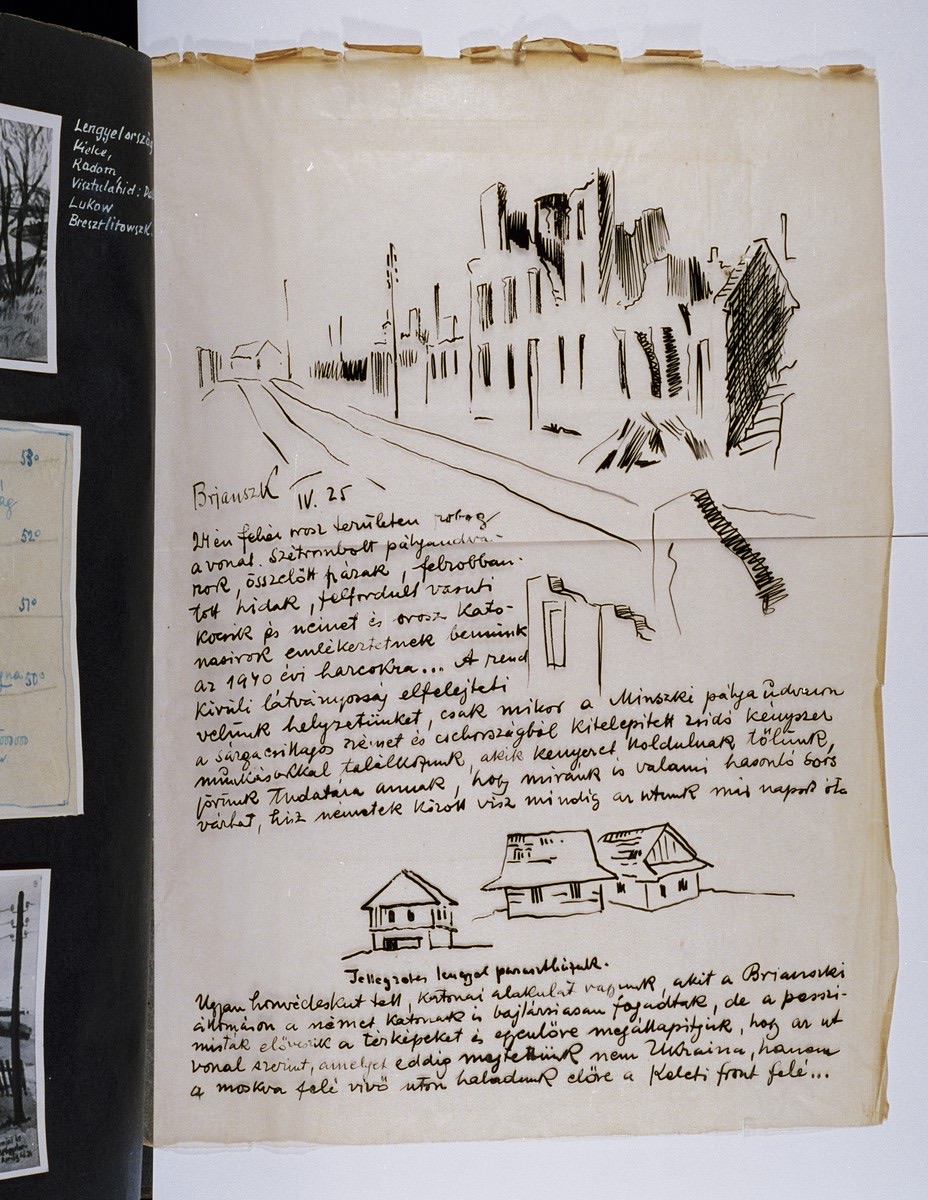 Lengyelország
Kielce,
Radom,
Visztulahid: D
Lukow
Bresztlitowszk.
53⁰
52⁰
51⁰
50⁰
Brjanszk IV. 25
24én fehér orosz területen robog
a vonat. Szétrombolt pályaudva-
rok, összelőtt házak, felrobban-
tott hidak, felfordult vasuti
kocsik és német és orosz kato-
nasirok emlékeztetnek bennünk
az 1940 évi harcokra... A rend
kivüli látványosság elfelejteti
velünk helyzetünket, csak mikor a Minszki pályaüdvaron
a sárgacsillagos német és csehországból kitelepitett zsidó kényszer
munkásokkal találkozunk, akik kenyeret koldulnak tőlünk,
jövünk tudatára annak, hogy miránk is valami hasonló sors
várhat, hisz németek között visz mindig az utunk már napok óta
Jellegzetes lengyel parasztházak.
Ugyan honvédeskut tett, katonai alakulat vagyunk, akit a Brianszki
állomáson a német katonák is bajtársiasan fogadtak, de a pesszi-
misták előveszik a térképeket és egyenlőre megállapitjuk, hogy az ut
vonal szerint, amelyet eddig megtettünk nem Ukraina, hanem
a moszkva felé vivő uton haladunk előre a Keleti front felé...